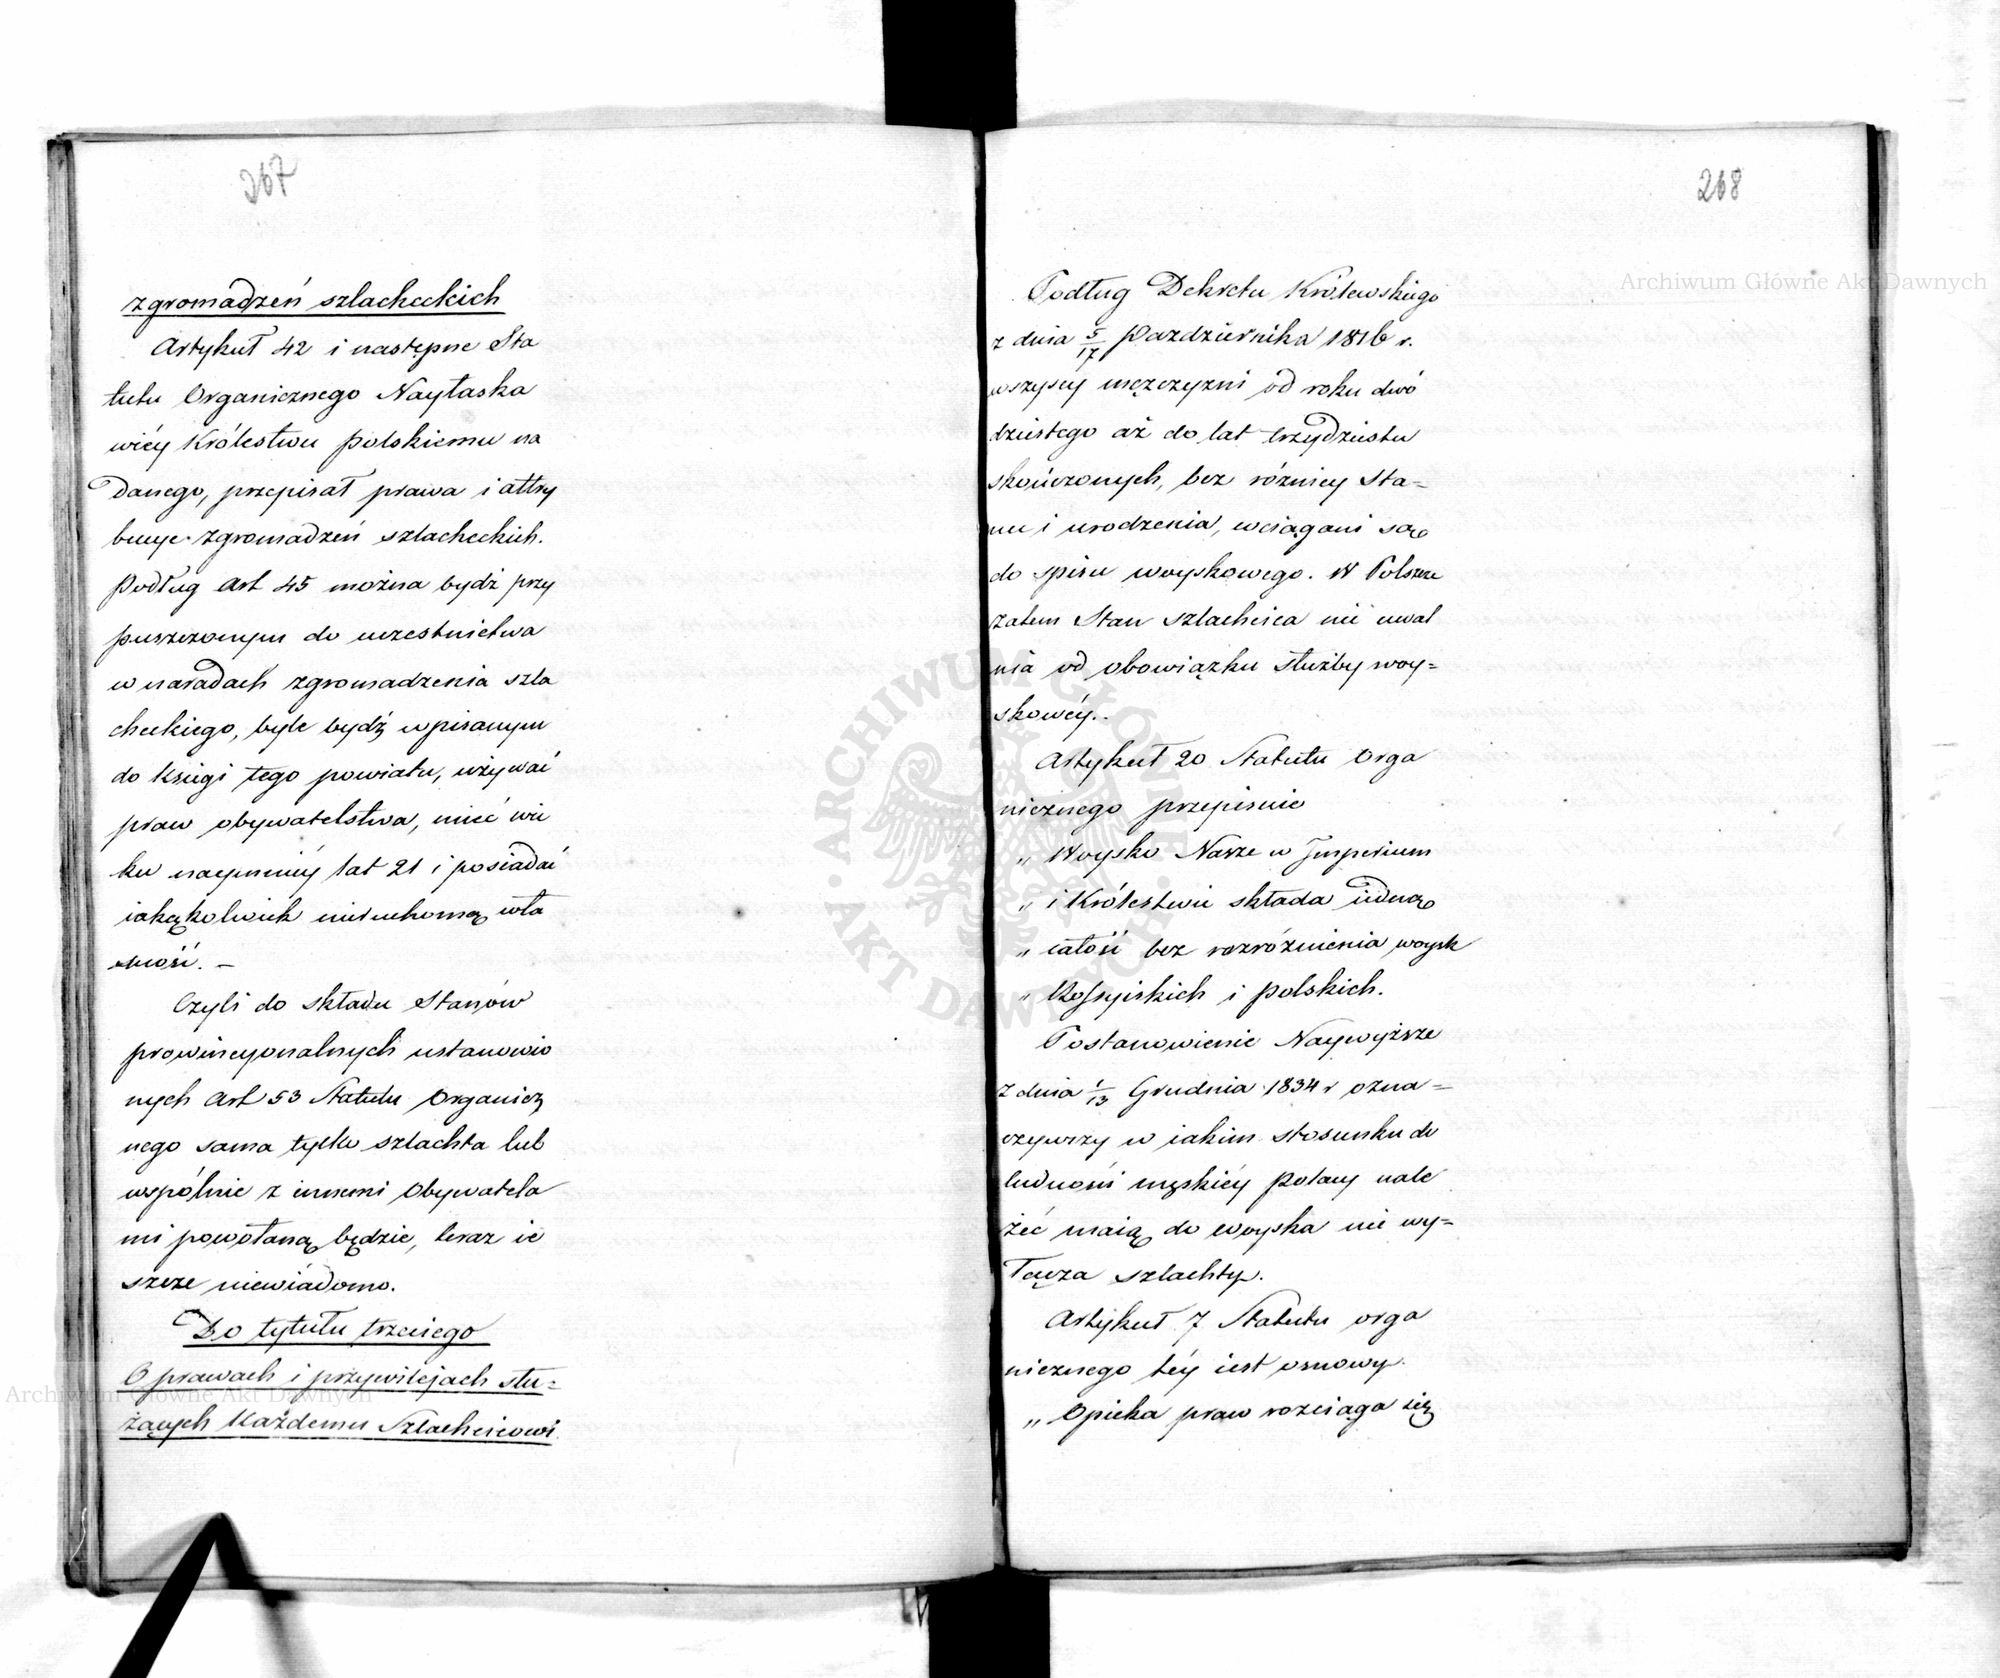 267
zgromadzeń szlacheckich
Artykuł 42 i następne Sta
tutu Organicznego Nayłaska
wiéy Królestwu polskiemu na
danego, przepisał prawa i attry
bucye zgromadzeń szlacheckich.
Podług Art 45 można bydź przy
puszczonym do uczestnictwa
w naradach zgromadzenia szla
checkiego, byle bydź wpisanym
do Księgi tego powiatu, używać
praw obywatelstwa, mieć wie
ku naymniéy lat 21 i posiadać
iakąkolwiek nieruchomą wła
sność. —
Czyli do składu Stanów
prowincyonalnych ustanowio
nych Art 53 Statutu Organicz
nego sama tylko szlachta lub
wspólnie z innemi Obywatela
mi powołaną będzie, teraz ie
szcze niewiadomo.
Do tytułu trzeciego
O prawach i przywilejach słu=
żących Każdemu Szlachcicowi
268
Podług Dekretu Królewskiego
z dnia 5/17 Pazdziernika 1816 r.
wszyscy mężczyzni od roku dwó
dziestego aż do lat trzydziestu
skończonych, bez różnicy Sta=
nu i urodzenia, wciągani są
do spisu woyskowego. W Polszcze
zatem Stan szlachcica nie uwal
nia od obowiązku służby woy=
skowéy.
Artykuł 20 Statutu Orga
nicznego przepisuie
„ Woysko Nasze w Imperium
„ i Królestwie składa iedną
„ całość bez rozróżnienia woysk
„ Rossyiskich i polskich.
Postanowienie Naywyższe
z dnia 1/13 Grudnia 1834 r ozna=
czywszy w iakim stosunku do
ludności męskiéy Polacy nale
żeć maią do woyska nie wy=
łącza szlachty.
Artykuł 7 Statutu orga
nicznego téy iest osnowy.
„ Opieka praw rozciąga się
Archiwum Główne Akt Dawnych
Archiwum Główne Akt Dawnych
ARCHIWUM GŁÓWNE · AKT DAWNYCH ·